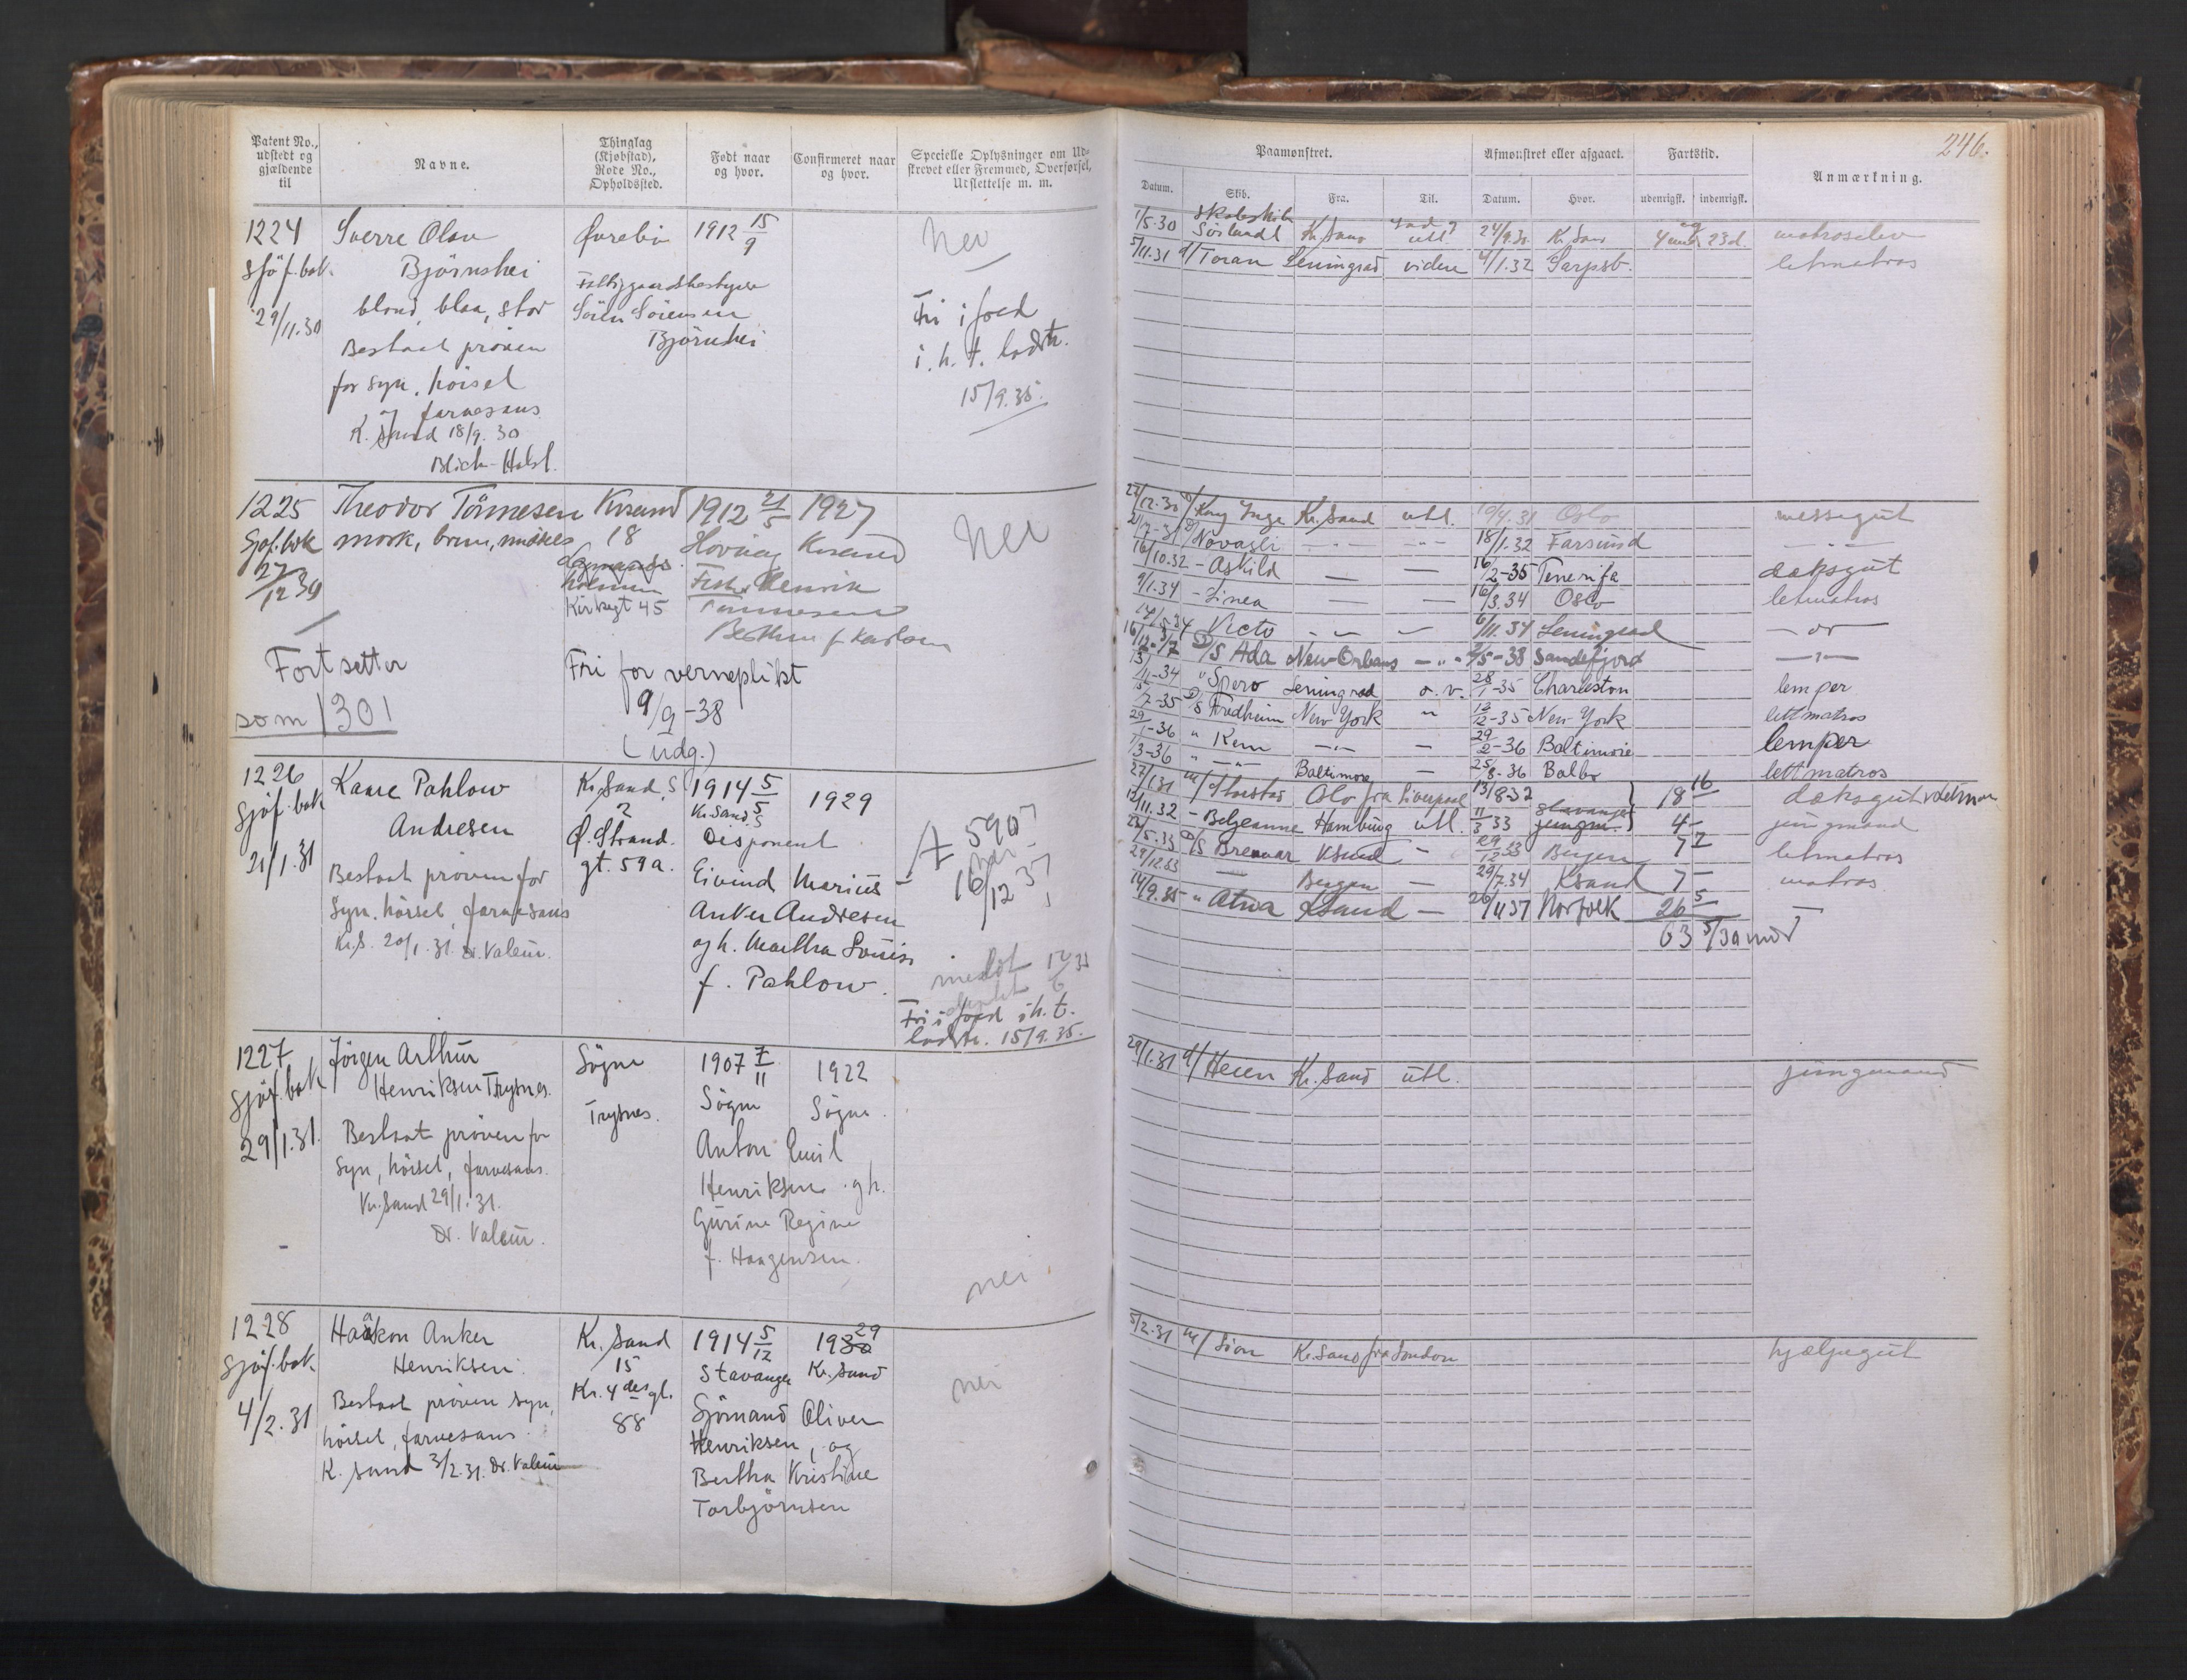 Patent No., udstedt og gjældende til
Navne.
Thinglag (Kjøbsted), Rode No., Opholdssted.
Født naar og hvor.
Confirmeret naar og hvor.
Specielle Oplysninger om Udskrevet eller Fremmed, Overførsel, Utslettelse m. m.
1224
Sjöf.bok.
29/11.30
Sverre Olav
Björnshei
blond, blaa, stor
Bestaat pröven
for syn, hörsel
og farvesans
K.sand 18/9.30
Blich-Holst.
Øvrebö
Sören Sörensen
Björnshei
1912 15/9
Nei
Fri i fred
i.h.t. lodtr.
15/9.35.
1225
Sjöf.bok
27/12 30
Fortsetter
som 1301
Theodor Tönnesen
mörk, brun, middels
Krsand
18
holmen
Kirkegt 45
1912 21/5
Henrik
Tönnesen
f. Karlsen
1927
Krsand
Fri for verneplikt
9/9-38
(udg.)
Nei
1226
Sjöf.bok
21/1.31
Kaare Pahlow
Andresen
Bestaat pröven for
syn, hörsel, farvesans
Kr.S. 20/1.31. Dr. Valeur.
Kr.Sand. S
2
Ø. Strand.
gt. 59a.
1914 5/5
Kr.Sand. S
Disponent
Eivind Marius
Anker Andresen
og h. Martha Louise
f. Pahlow.
1929
5907
16/12 37
meldt
Fri i fred i.h.t.
lodtr. 15/9.35.
1227
Sjöf.bok
29/1.31.
Jörgen Arthur
Henriksen Trysnes.
Bestaat pröven for
syn, hörsel, farvesans.
Kr.Sand 29/1.31.
Dr. Valeur.
Sögne
Trysnes.
1907 7/11
Sögne
Anton Emil
Henriksen og h.
Gurine Regine
f. Haagensen.
1922
Sögne.
nei
1228
Sjöf.bok.
4/2.31
Haakon Anker
Henriksen.
Bestaat pröven syn,
hörsel, farvesans.
K.sand 3/2.31. Dr. Valeur
Kr. Sand
15
Kr. 4des gt.
88
1914 5/12
Stavanger
Sjömand Oliver
Henriksen, og
Bertha Kristine
Torbjörnsen
1930 29
Kr.sand
nei
246.
Paamønstret.
Afmønstret eller afgaaet.
Fartstid.
Anmærkning.
Datum.
Skib.
Fra.
Til.
Datum.
Hvor.
udenrigsk.
indenrigsk.
1/5.30 Skoleskib Sörlandet Kr.Sand utl. 24/9.30 Kr.Sand 4 mdr 23d. matroselev
5/11.31 d/ Toran Leningrad videre 4/1.32 Sarpsb. letmatros
27/12.30 d/ Kong Inge Kr.Sand utl. 10/4.31 Oslo messegut
Novasli 18/1.32 Farsund
16/10.32 - Askild 16/2-35 Tenerifa dæksgut
9/1.34 - Linea 16/3.34 Oslo letmatros
14/5.34 Victo 6/11.34 Leningrad
D/S Ada New-Orleans 2/5-38 Sandefjord
13/11-34 " Spero Leningrad o.v. 28/1-35 Charleston lemper
7-35 D/S Fredheim New York " 12/12-35 New-York lettmatros
29/1-36 " Kem 29/2-36 Baltimore lemper
1/3-36 Baltimore 25/8-36 Balbo lettmatros
27/1 31 m/ Thorstad Oslo fra Liverpool 13/8-32 18 16 dæksgut
12/11.32 - Beljeanne Hamburg utl. 11/3 33 Stavanger 4 jungmand
23/5.33 D/S Breavar Ksand - 29/12 33 Bergen 7 7 letmatros
29/12 33 Bergen - 29/7.34 Ksand 7 - matros
14/9.35 " Atna Ksand - 26/11 37 Norfolk 26 5
63 5/30 mnd
29/1.31 d/ Heien Kr.Sand utl. jungmand
5/2.31 m/ Sion Kr.Sand fra London hjælpegut